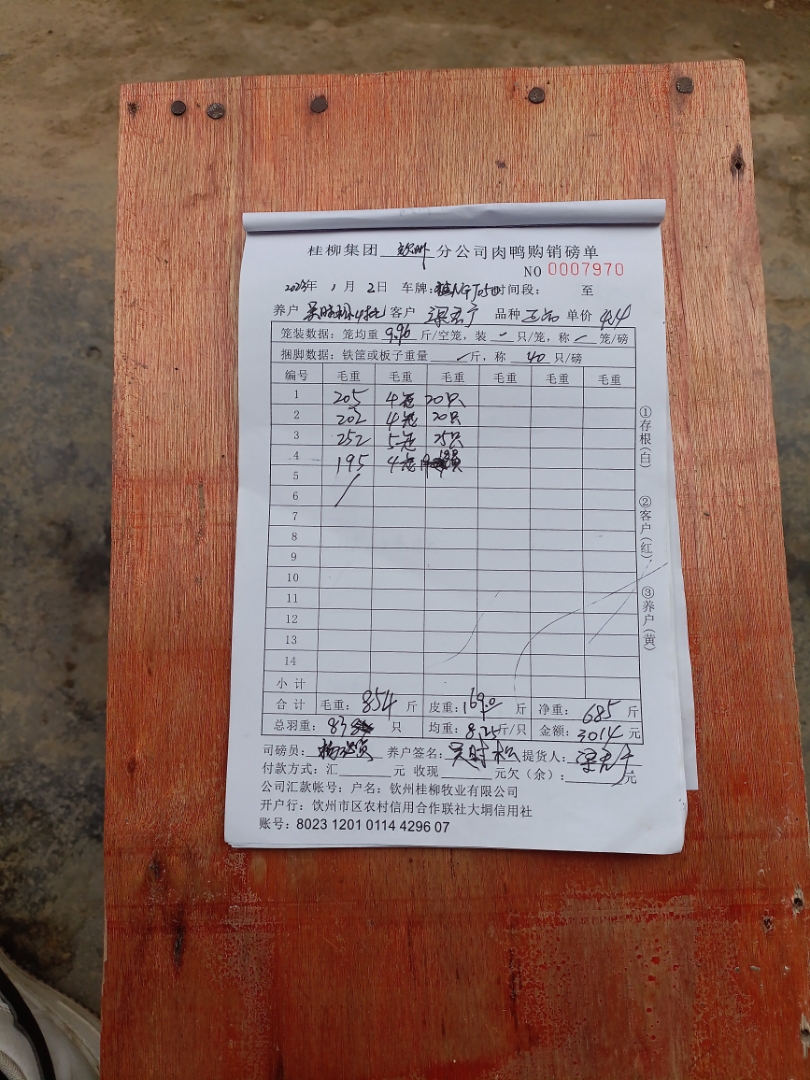 桂柳集团 钦州 分公司肉鸭购销磅单
NO 0007970
2023年 1月 2日 车牌: 时间段: 至
养户 客户 品种 正品 单价 4.4
笼装数据: 笼均重 9.96 斤/空笼, 装 一 只/笼, 称 一 笼/磅
捆脚数据: 铁筐或板子重量 一 斤, 称 40 只/磅
编号 毛重 毛重 毛重 毛重 毛重 毛重
1 205 4笼 20只
2 202 4笼 20只
3 252 5笼 25只
4 195 4笼
5
6
7
8
9
10
11
12
13
14
小计
合计 毛重: 854 斤 皮重: 169.0 斤 净重: 685 斤
总羽重: 83 只 均重: 8.25 斤/只 金额: 3014 元
司磅员: 养户签名: 吴时松 提货人:
付款方式: 汇 元 收现 元欠(余): 元
公司汇款帐号: 户名: 钦州桂柳牧业有限公司
开户行: 钦州市区农村信用合作联社大垌信用社
账号: 8023 1201 0114 4296 07
①存根(白)
②客户(红)
③养户(黄)